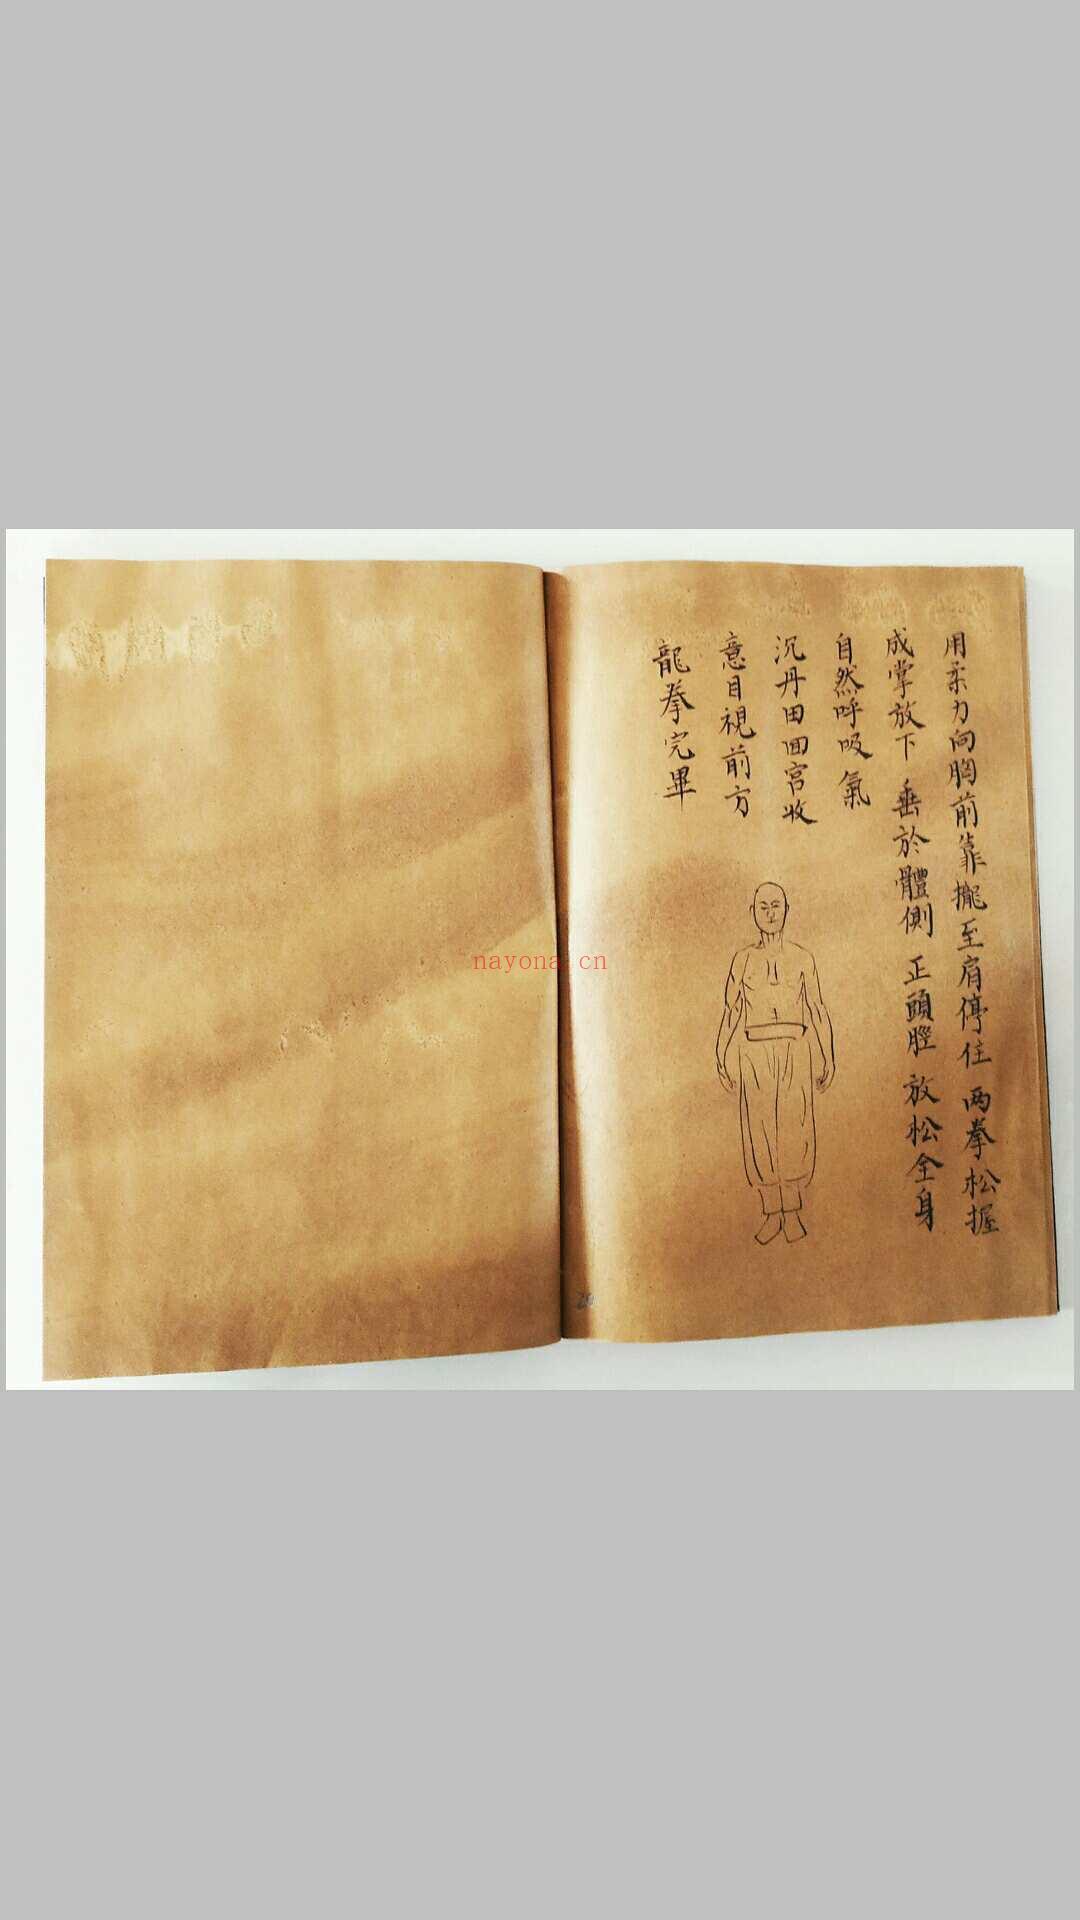 用柔力向胸前靠攏至肩停住 两拳松握
成掌放下 垂於體側 正頭脛 放松全身
自然呼吸 氣
沉丹田 回宫收
意目視前方
龍拳完畢
nayona.cn